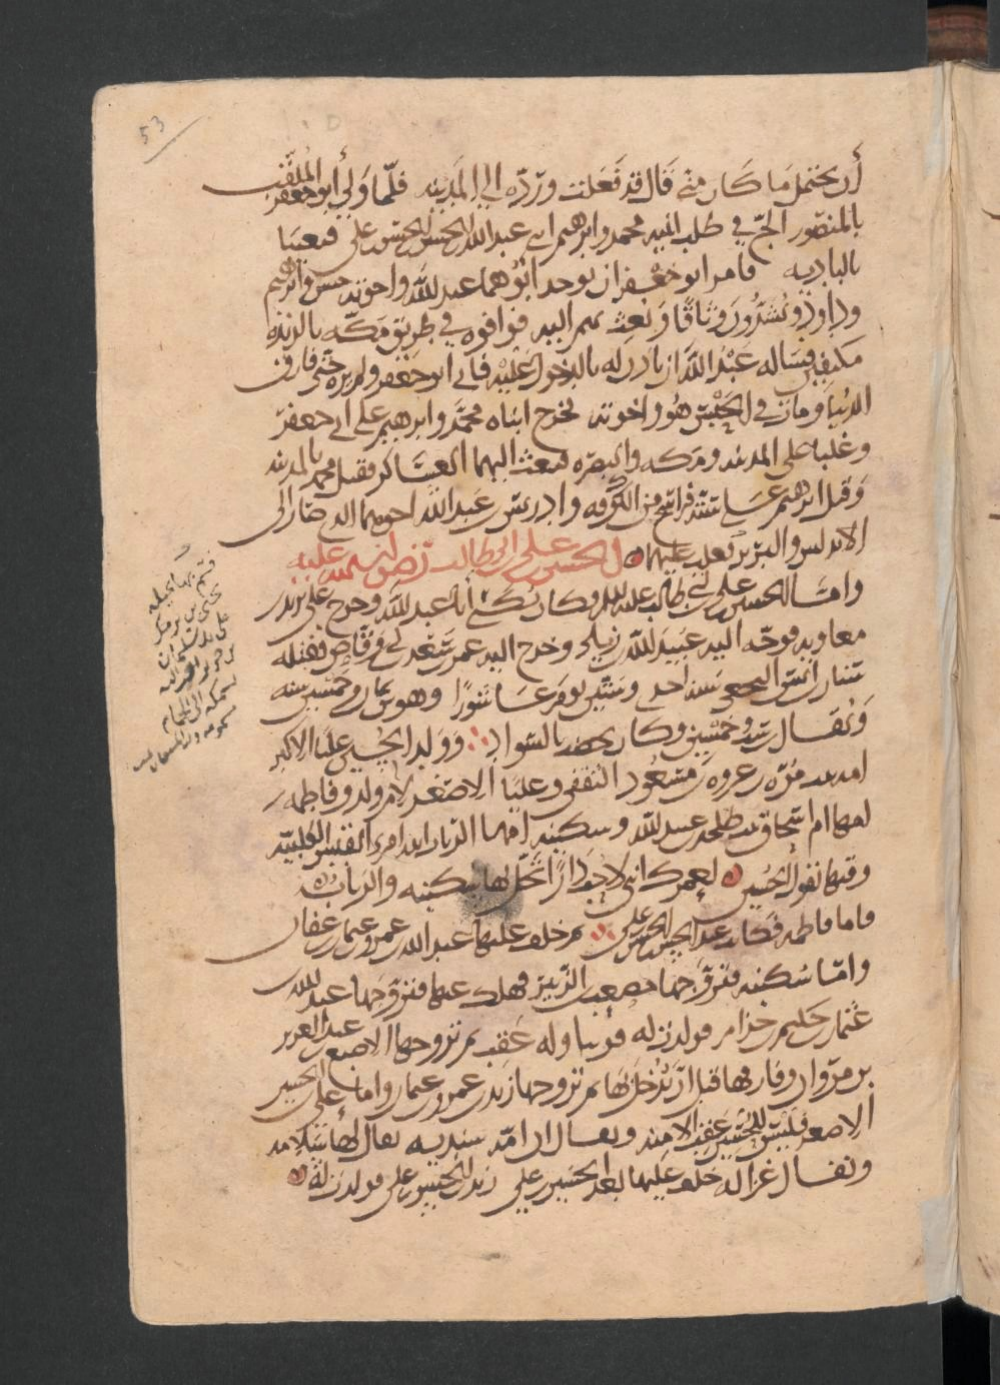 53
أن يحتمل ما كان مني قال قد فعلت وردّه الى المدينه فلمّا ولي أبو جعفر الملقّب
بالمنصور ألحّ في طلب ابنيه محمد وابرهيم ابني عبد الله بن الحسن بن الحسن بن علي فتغيبا
بالباديه فامر ابو جعفر ان يوخذ ابوهما عبد الله واخوته حسن وابرهيم
وداوود ويشدّون وثاقًا ويبعث بهم اليه فوافوه في طريق مكّه بالربذه
مكتفين فساله عبد الله ان ياذن له بالدخول عليه فابى ابو جعفر ولم يره حتى فارق
الدنيا ومات في الحبس هو واخوته فخرج ابناه محمّد وابرهيم على ابي جعفر
وغلبا على المدينه ومكه والبصره فبعث اليهما العساكر فقتل محمد بالمدينه
وقتل ابرهيم على ستّه عشر فرسخ من الكوفه وادريس بن عبد الله اخوهما الذي صار الى
الاندلس والبربر فغلب عليهما الحسين بن علي بن ابي طالب رضوان الله عليه
وامّا الحسين بن علي بن ابي طالب عليه السلم فكان يكنى أبا عبد الله وخرج على يزيد بن
معاويه فوجّه اليه عبيد الله بن زياد وخرج اليه عمر بن سعد بن ابي وقّاص فقتله
سنان بن انس النخعي سنه احدى وستّين يوم عاشورا وهو بن ثمان وخمسين سنه
ويقال ستّ وخمسين وكان يخضب بالسواد وولد الحسين عليًا الاكبر
امه بنت مرّه بن عروه بن مسعود الثقفي وعليا الاصغر لام ولد وفاطمه
امها ام اسحاق بنت طلحه بن عبيد الله وسكينه امها الرباب بنت امرئ القيس الكلبيّه
وفيها يقول الحسين لعمرك انني لاحب دارًا تحل بها سكينه والرباب
فاما فاطمه فكانت عند الحسن بن الحسن بن علي ثم خلف عليها عبد الله بن عمرو بن عثمان بن عفان
وامّا سكينه فتزوّجها مصعب بن الزبير فهلك عنها فتزوّجها عبد الله بن
عثمان بن حكيم بن حزام فولدت له قرينا وله عقب ثم تزوجها الاصبغ بن عبد العزيز
بن مروان وفارقها قبل ان يدخل بها ثم تزوجها زيد بن عمرو بن عثمان واما علي بن الحسين
الاصغر فليس للحسين عقب الا منه ويقال ان امّه سنديه يقال لها سلامه
ويقال غزاله خلف عليها بعد الحسين بن علي زبيد مولى الحسين بن علي فولدت له